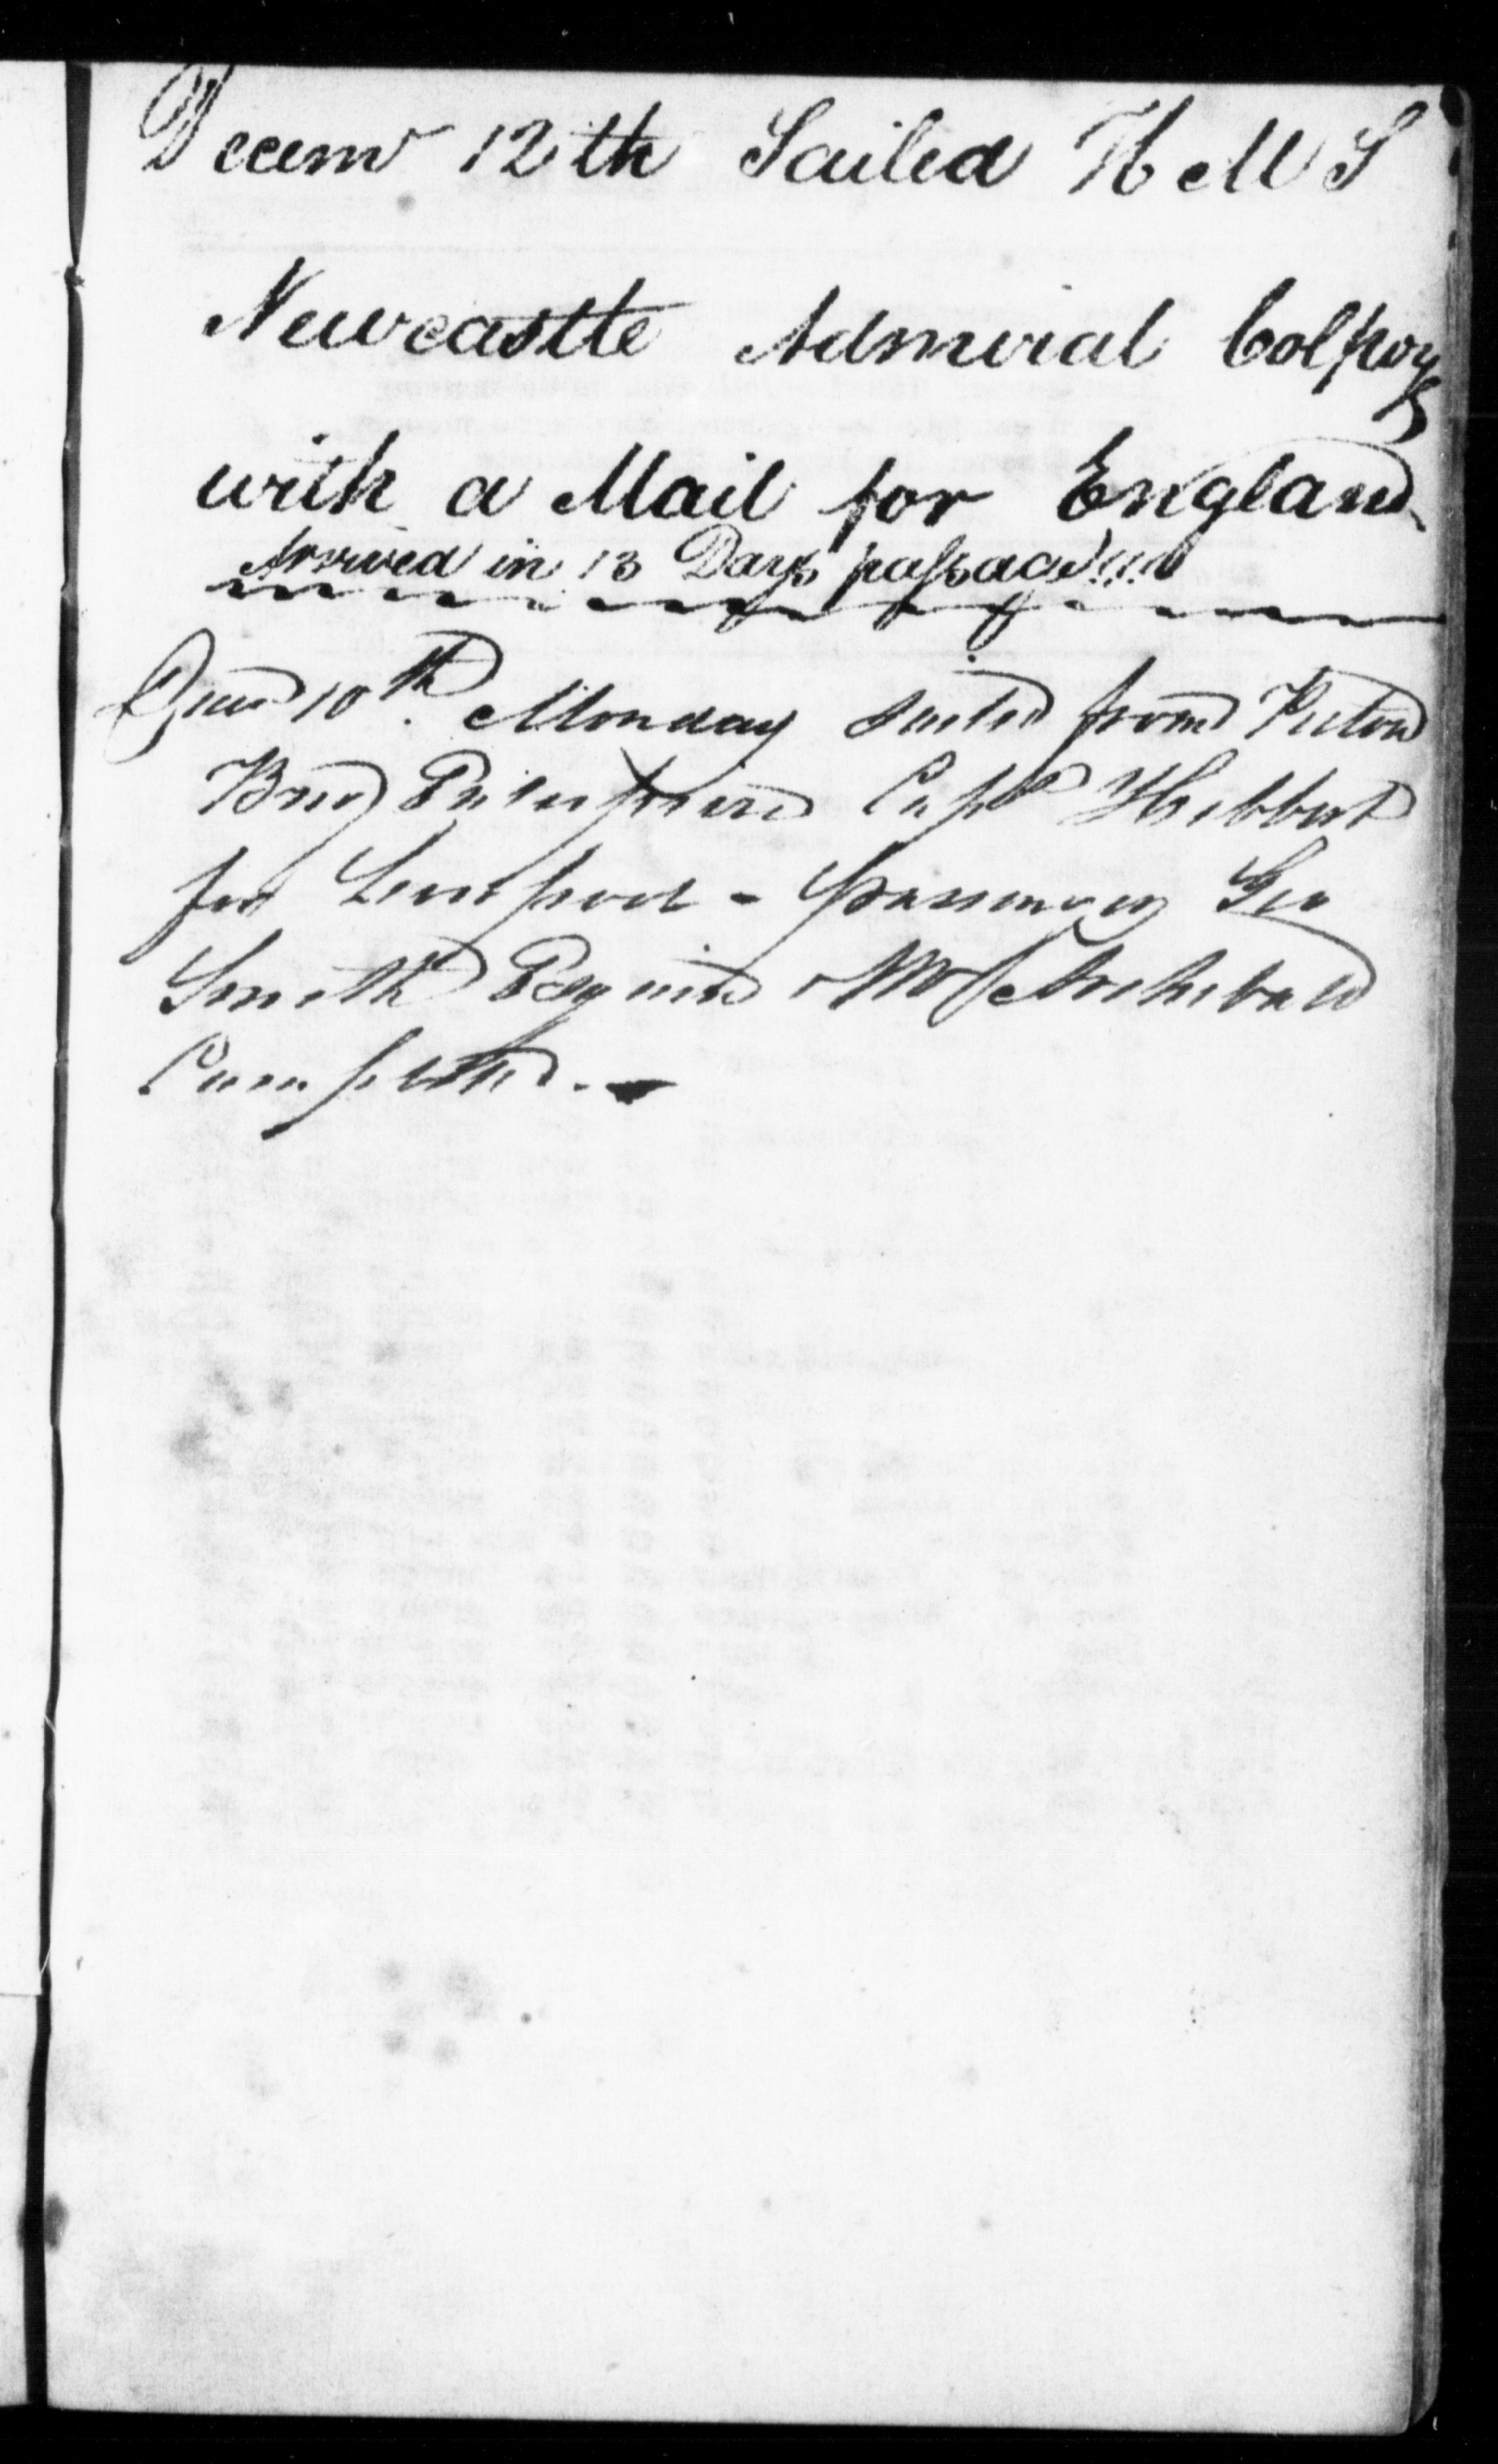 Decemr 12th Sailed H M S
Newcastle Admiral Colpoys
with a Mail for England
Arrived in 13 Days passage!!!!
10th. Monday Sailed from Pictou
Brig Enterprize Capt Hibbert
for Liverpool - passengers Geo
Smith Esquire Mr Archibald
Campbell. -